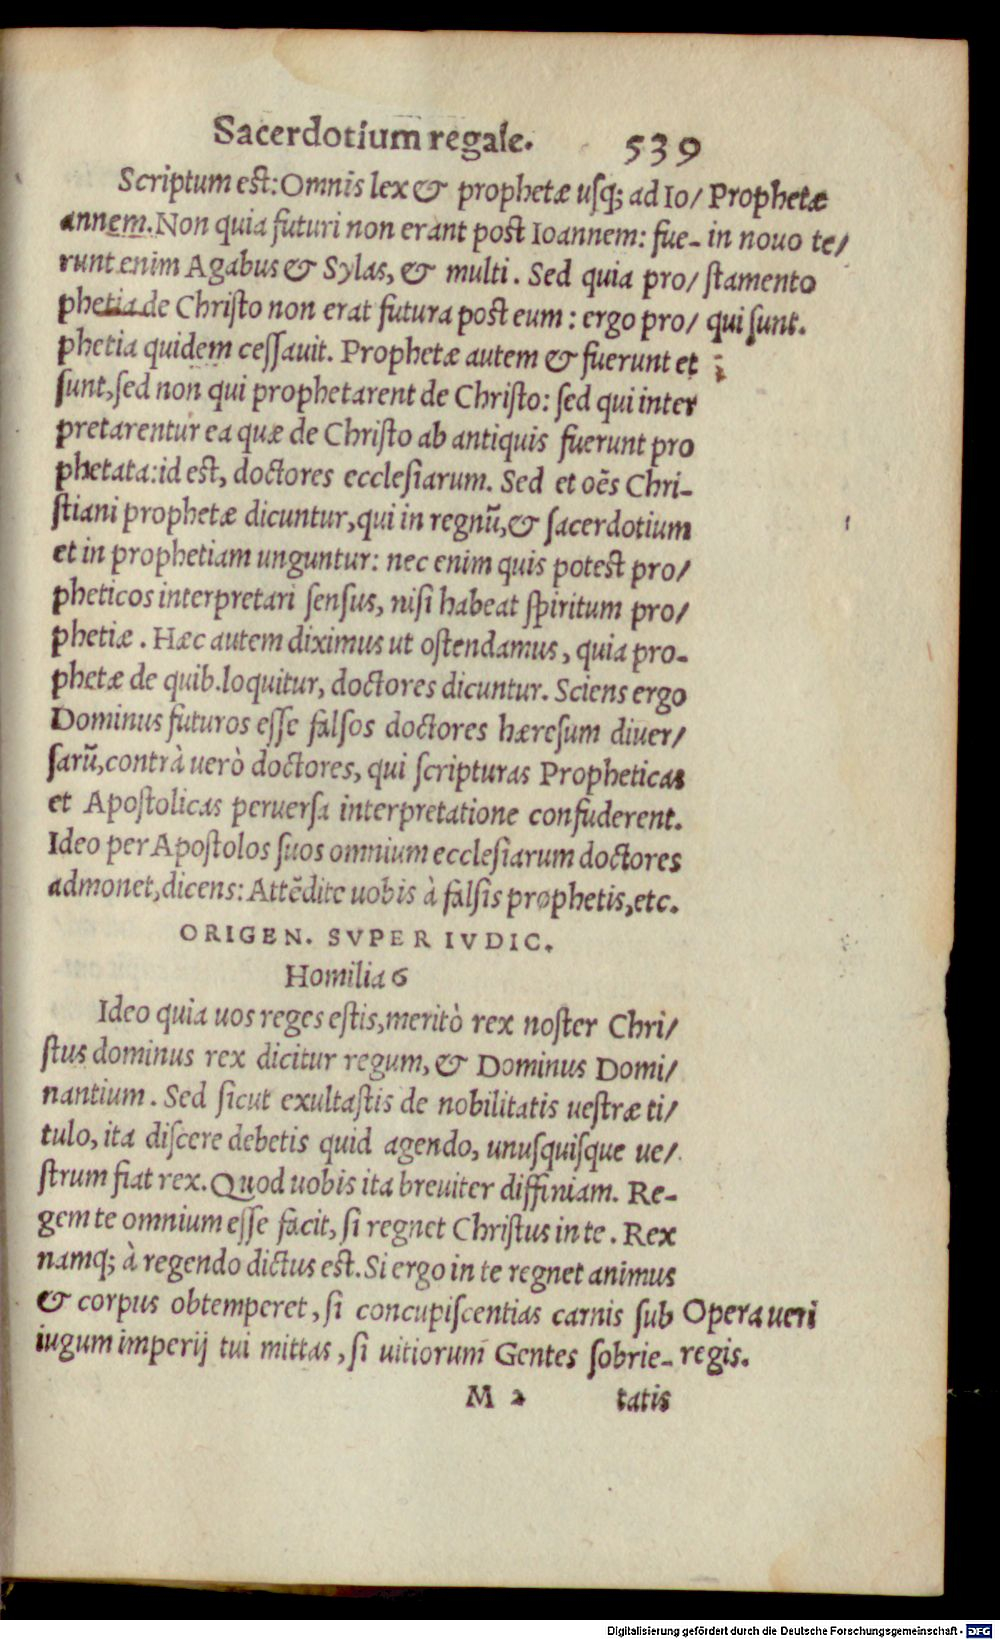 Sacerdotium regale. 539
Scriptum est: Omnis lex & prophetæ usq; ad Io/
annem. Non quia futuri non erant post Ioannem: fue-
runt enim Agabus & Sylas, & multi. Sed quia pro/
phetia de Christo non erat futura post eum: ergo pro/
phetia quidem cessauit. Prophetæ autem & fuerunt et
sunt, sed non qui prophetarent de Christo: sed qui inter
pretarentur ea quæ de Christo ab antiquis fuerunt pro
phetata: id est, doctores ecclesiarum. Sed et oẽs Chri-
stiani prophetæ dicuntur, qui in regnũ, & sacerdotium
et in prophetiam unguntur: nec enim quis potest pro/
pheticos interpretari sensus, nisi habeat spiritum pro/
phetiæ. Hæc autem diximus ut ostendamus, quia pro-
phetæ de quib. loquitur, doctores dicuntur. Sciens ergo
Dominus futuros esse falsos doctores hæresum diuer/
sarũ, contrà uerò doctores, qui scripturas Propheticas
et Apostolicas peruersa interpretatione confuderent.
Ideo per Apostolos suos omnium ecclesiarum doctores
admonet, dicens: Attẽdite uobis à falsis prophetis, etc.
Prophetæ
in nouo te/
stamento
qui sunt.
ORIGEN. SVPER IVDIC.
Homilia 6
Ideo quia uos reges estis, meritò rex noster Chri/
stus dominus rex dicitur regum, & Dominus Domi/
nantium. Sed sicut exultastis de nobilitatis uestræ ti/
tulo, ita discere debetis quid agendo, unusquisque ue/
strum fiat rex. Quod uobis ita breuiter diffiniam. Re-
gem te omnium esse facit, si regnet Christus in te. Rex
namq; à regendo dictus est. Si ergo in te regnet animus
& corpus obtemperet, si concupiscentias carnis sub
iugum imperij tui mittas, si uitiorum Gentes sobrie-
Opera ueri
regis.
M 2 tatis
Digitalisierung gefördert durch die Deutsche Forschungsgemeinschaft - DFG